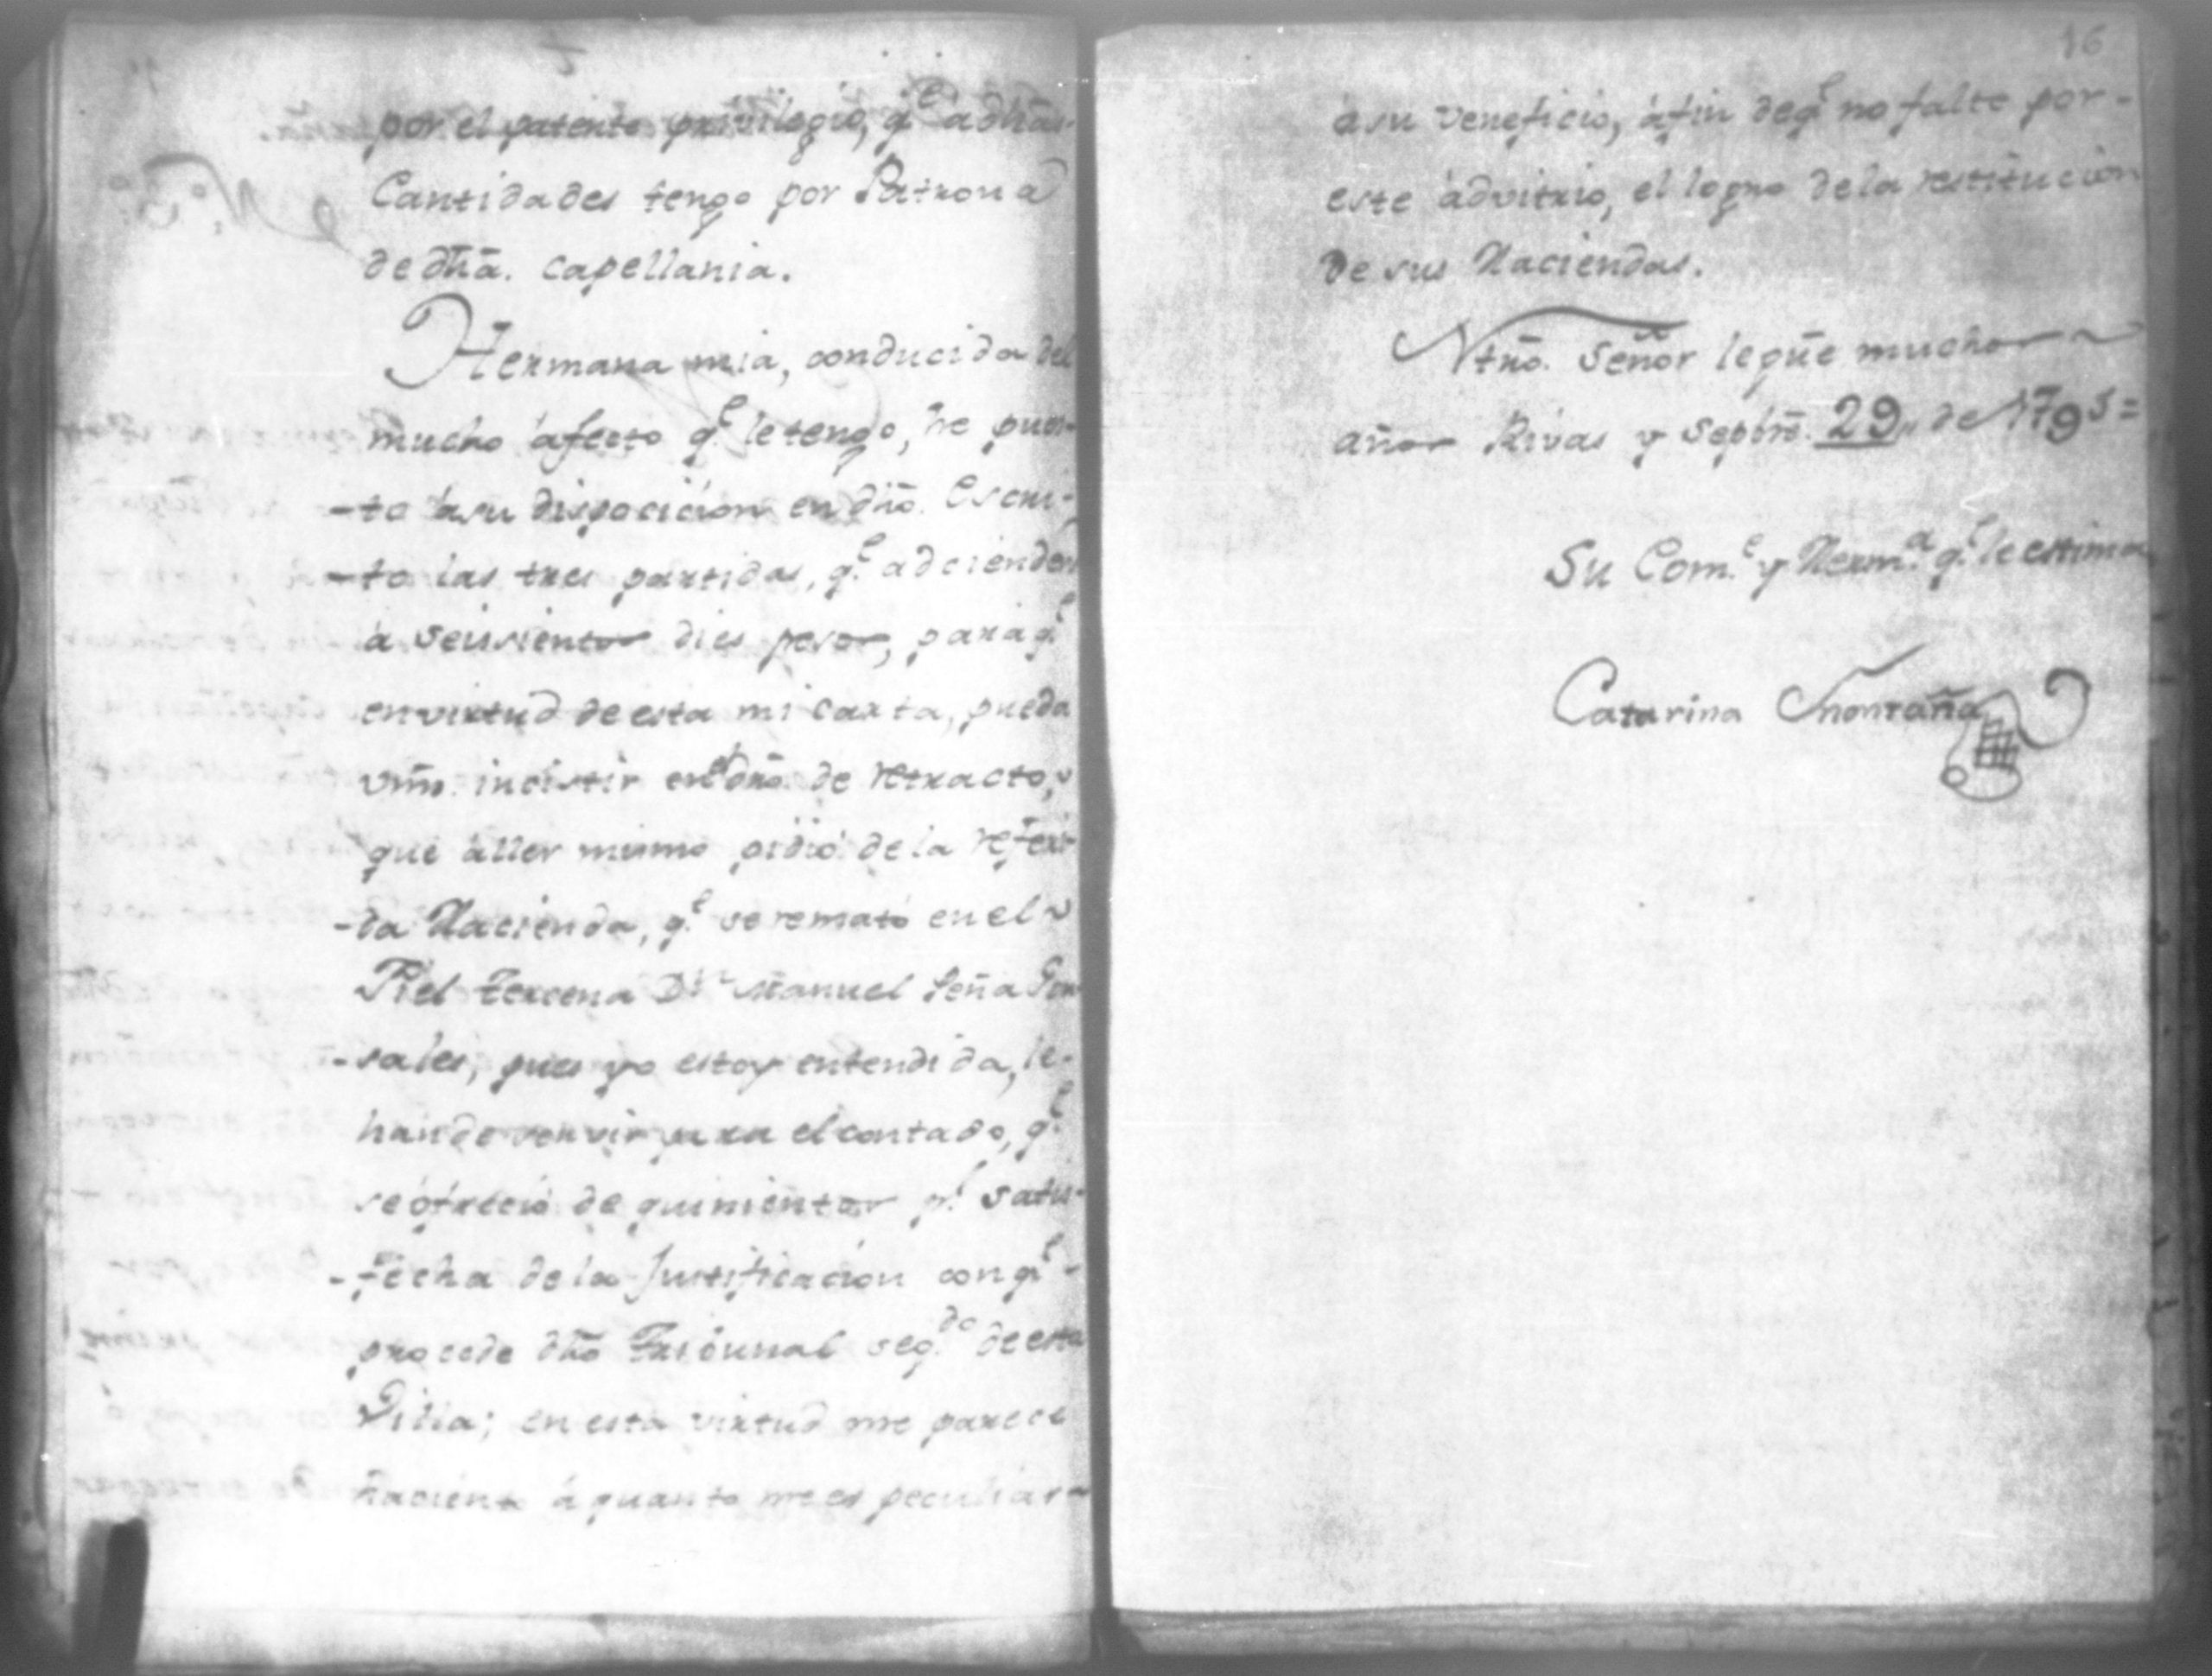 por el patente privilegio, q.e a dhãs.
Cantidades tengo por Patrona
de dhã. capellania.
Hermana mia, conducida del
mucho áfecto q.e le tengo, he pues-
-to ásu dispocicion en dho. Escri-
-to las tres partidas, q.e adcienden
á seisientos dies pesos, para q.e
envirtud de esta mi carta, pueda
vm̃. incistir en el dro. de retracto,
que áller mismo pidió de la referi-
-da Hacienda, q.e se remató en el
Fiel tercena Dn. Manuel Peña Gon
-sales; pues yo estoy entendida, le-
han de servir para el contado, q.e
se ófreció de quinientos p.s satis-
-fecha de la Justificacion con q.e -
procede dho Tribunal seg.do de esta
Villa; en esta virtud me parece
haciento á quanto me es peculiar
16
ásu veneficio, áfin deq.e no falte por-
este ádvitrio, el logro dela restitucion
de sus Haciendas.
Ntrõ. Señor le gũe muchos
años Rivas y Sepbrẽ. 29,, de 1795=
Su Com.e y Herm.a q.e le estima
Catarina Montaña